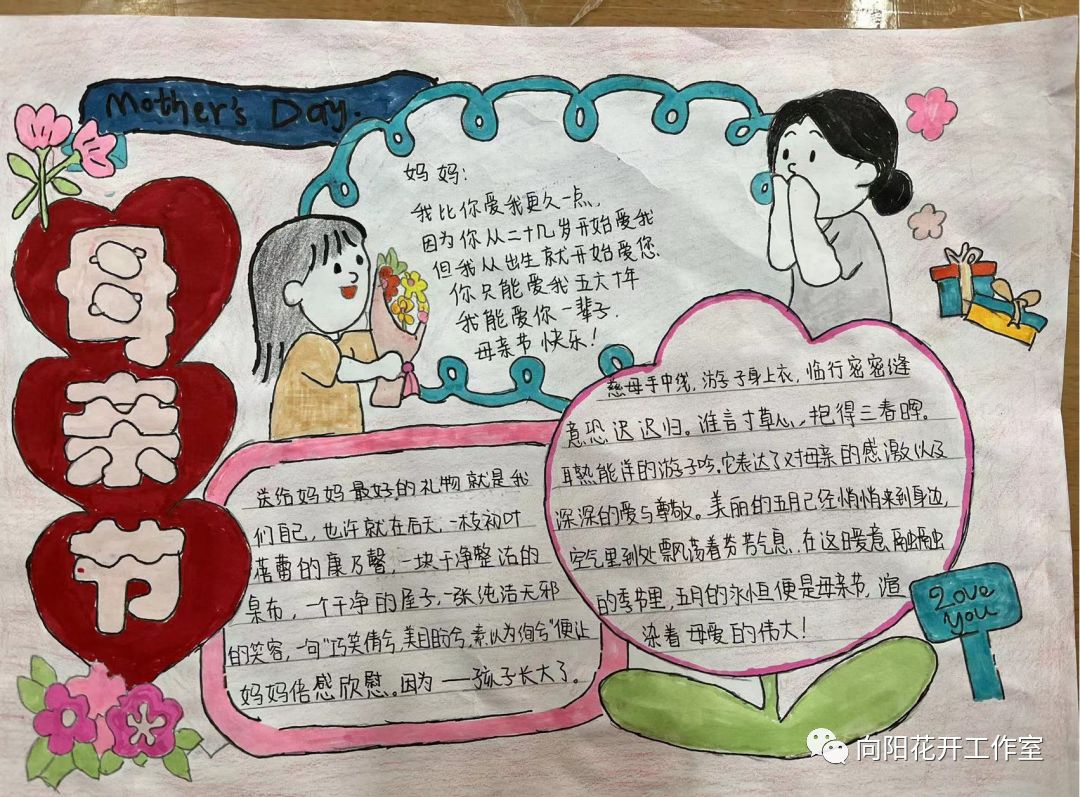 Mother's Day.
母亲节
妈妈:
我比你爱我更久一点,
因为你从二十几岁开始爱我
但我从出生就开始爱您.
你只能爱我五六十年
我能爱你一辈子.
母亲节快乐!
慈母手中线,游子身上衣,临行密密缝
意恐迟迟归。谁言寸草心,抱得三春晖。
耳熟能详的游子吟.它表达了对母亲的感激以及
深深的爱与尊敬。美丽的五月已经悄悄来到身边,
空气里到处飘荡着芬芳气息.在这日暖意融融
的季节里,五月的永恒便是母亲节,渲
染着母爱的伟大!
送给妈妈最好的礼物就是我
们自己,也许就在后天,一枝初叶
蓓蕾的康乃馨,一块干净整洁的
桌布,一个干净的屋子,一张纯洁无邪
的笑容,一句"巧笑倩兮,美目盼兮,素以为绚兮"便让
妈妈倍感欣慰。因为——孩子长大了。
Love
you
向阳花开工作室